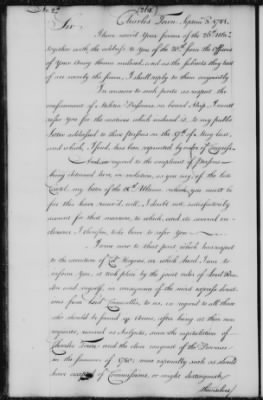 Charles Town Septem 3d 1781.
Sir
I have receiv'd Your favour of the 26th Ulto.
together with the address to You of the 20th from the Officers
of Your Army therein inclosed, and as the subjects they treat
of are exactly the same, I shall reply to them conjointly
In answer to such parts as respect the
confinement of Militia Prisoners on board Ship, I must
refer you for the motives which induced it, to my public
Letter addressed to their Persons on the 17th of May last,
and which, I find, has been reprinted by order of Congress.
And in regard to the complaint of Persons
being detained here, in violation, as you say, of the late
Cartel, my letter of the 18th Ultimo which you must be
for this have receiv'd will, I doubt not, satisfactorily
account for that measure, to which, and its several in-
closures I therefore take leave to refer you
I come now to that part which has respect
to the execution of Col. Haynes, on which head I am to
inform You, it took place by the joint order of Lord Raw-
don and myself, in consequence of the most express direct-
ions from Lord Cornwallis, to us, in regard to all those
who should be found in Arms, after being at their own
requests, received as Subjects, since the capitulation of
Charles Town, and the clear conquest of the Province
in the summer of 1780; more especially such as should
have accepted of Commissions, or might distinguish
themselves